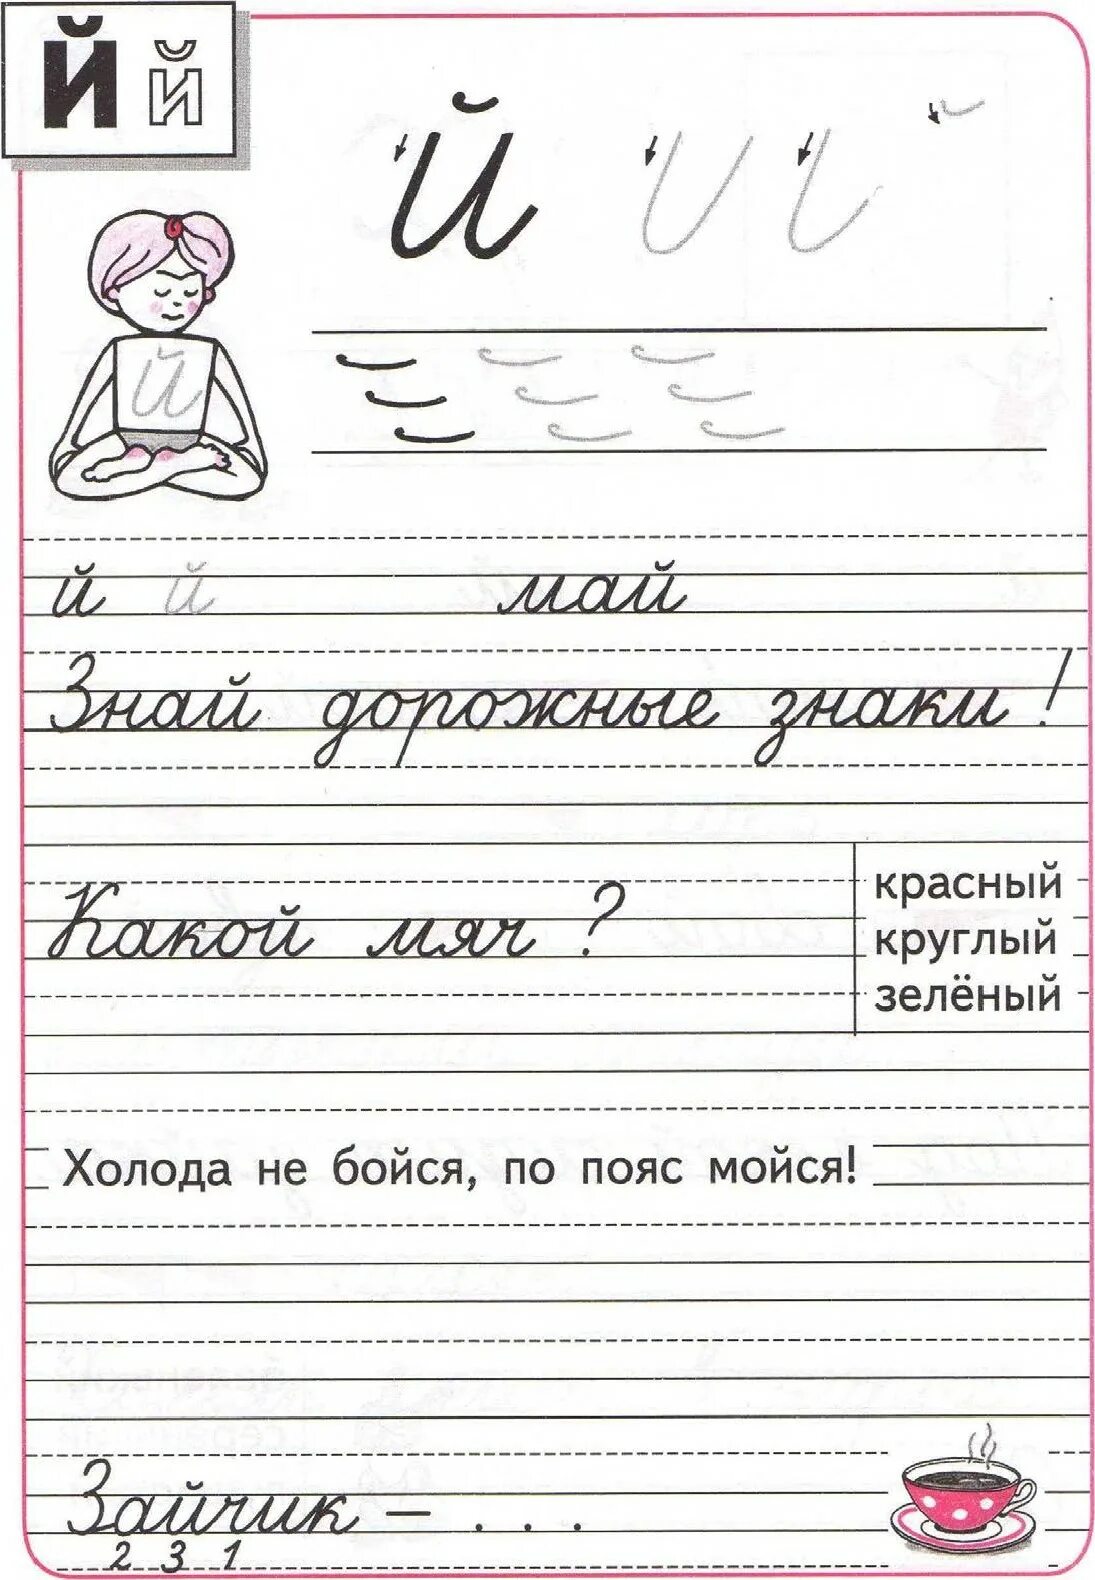 Й й
Й
Й
й й май
Знай дорожные знаки!
Какой мяч?
красный
круглый
зелёный
Холода не бойся, по пояс мойся!
Зайчик – . . .
2 3 1